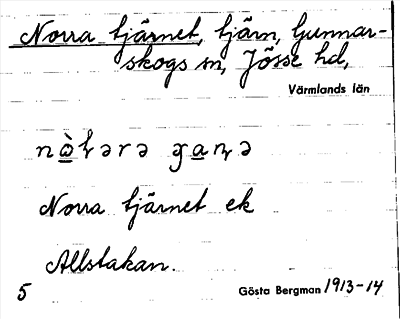 Norra tjärnet, tjärn, Gunnar-
skogs sn, Jösse hd,
Värmlands län
Norra tjärnet ek
Allstakan.
5
Gösta Bergman 1913-14